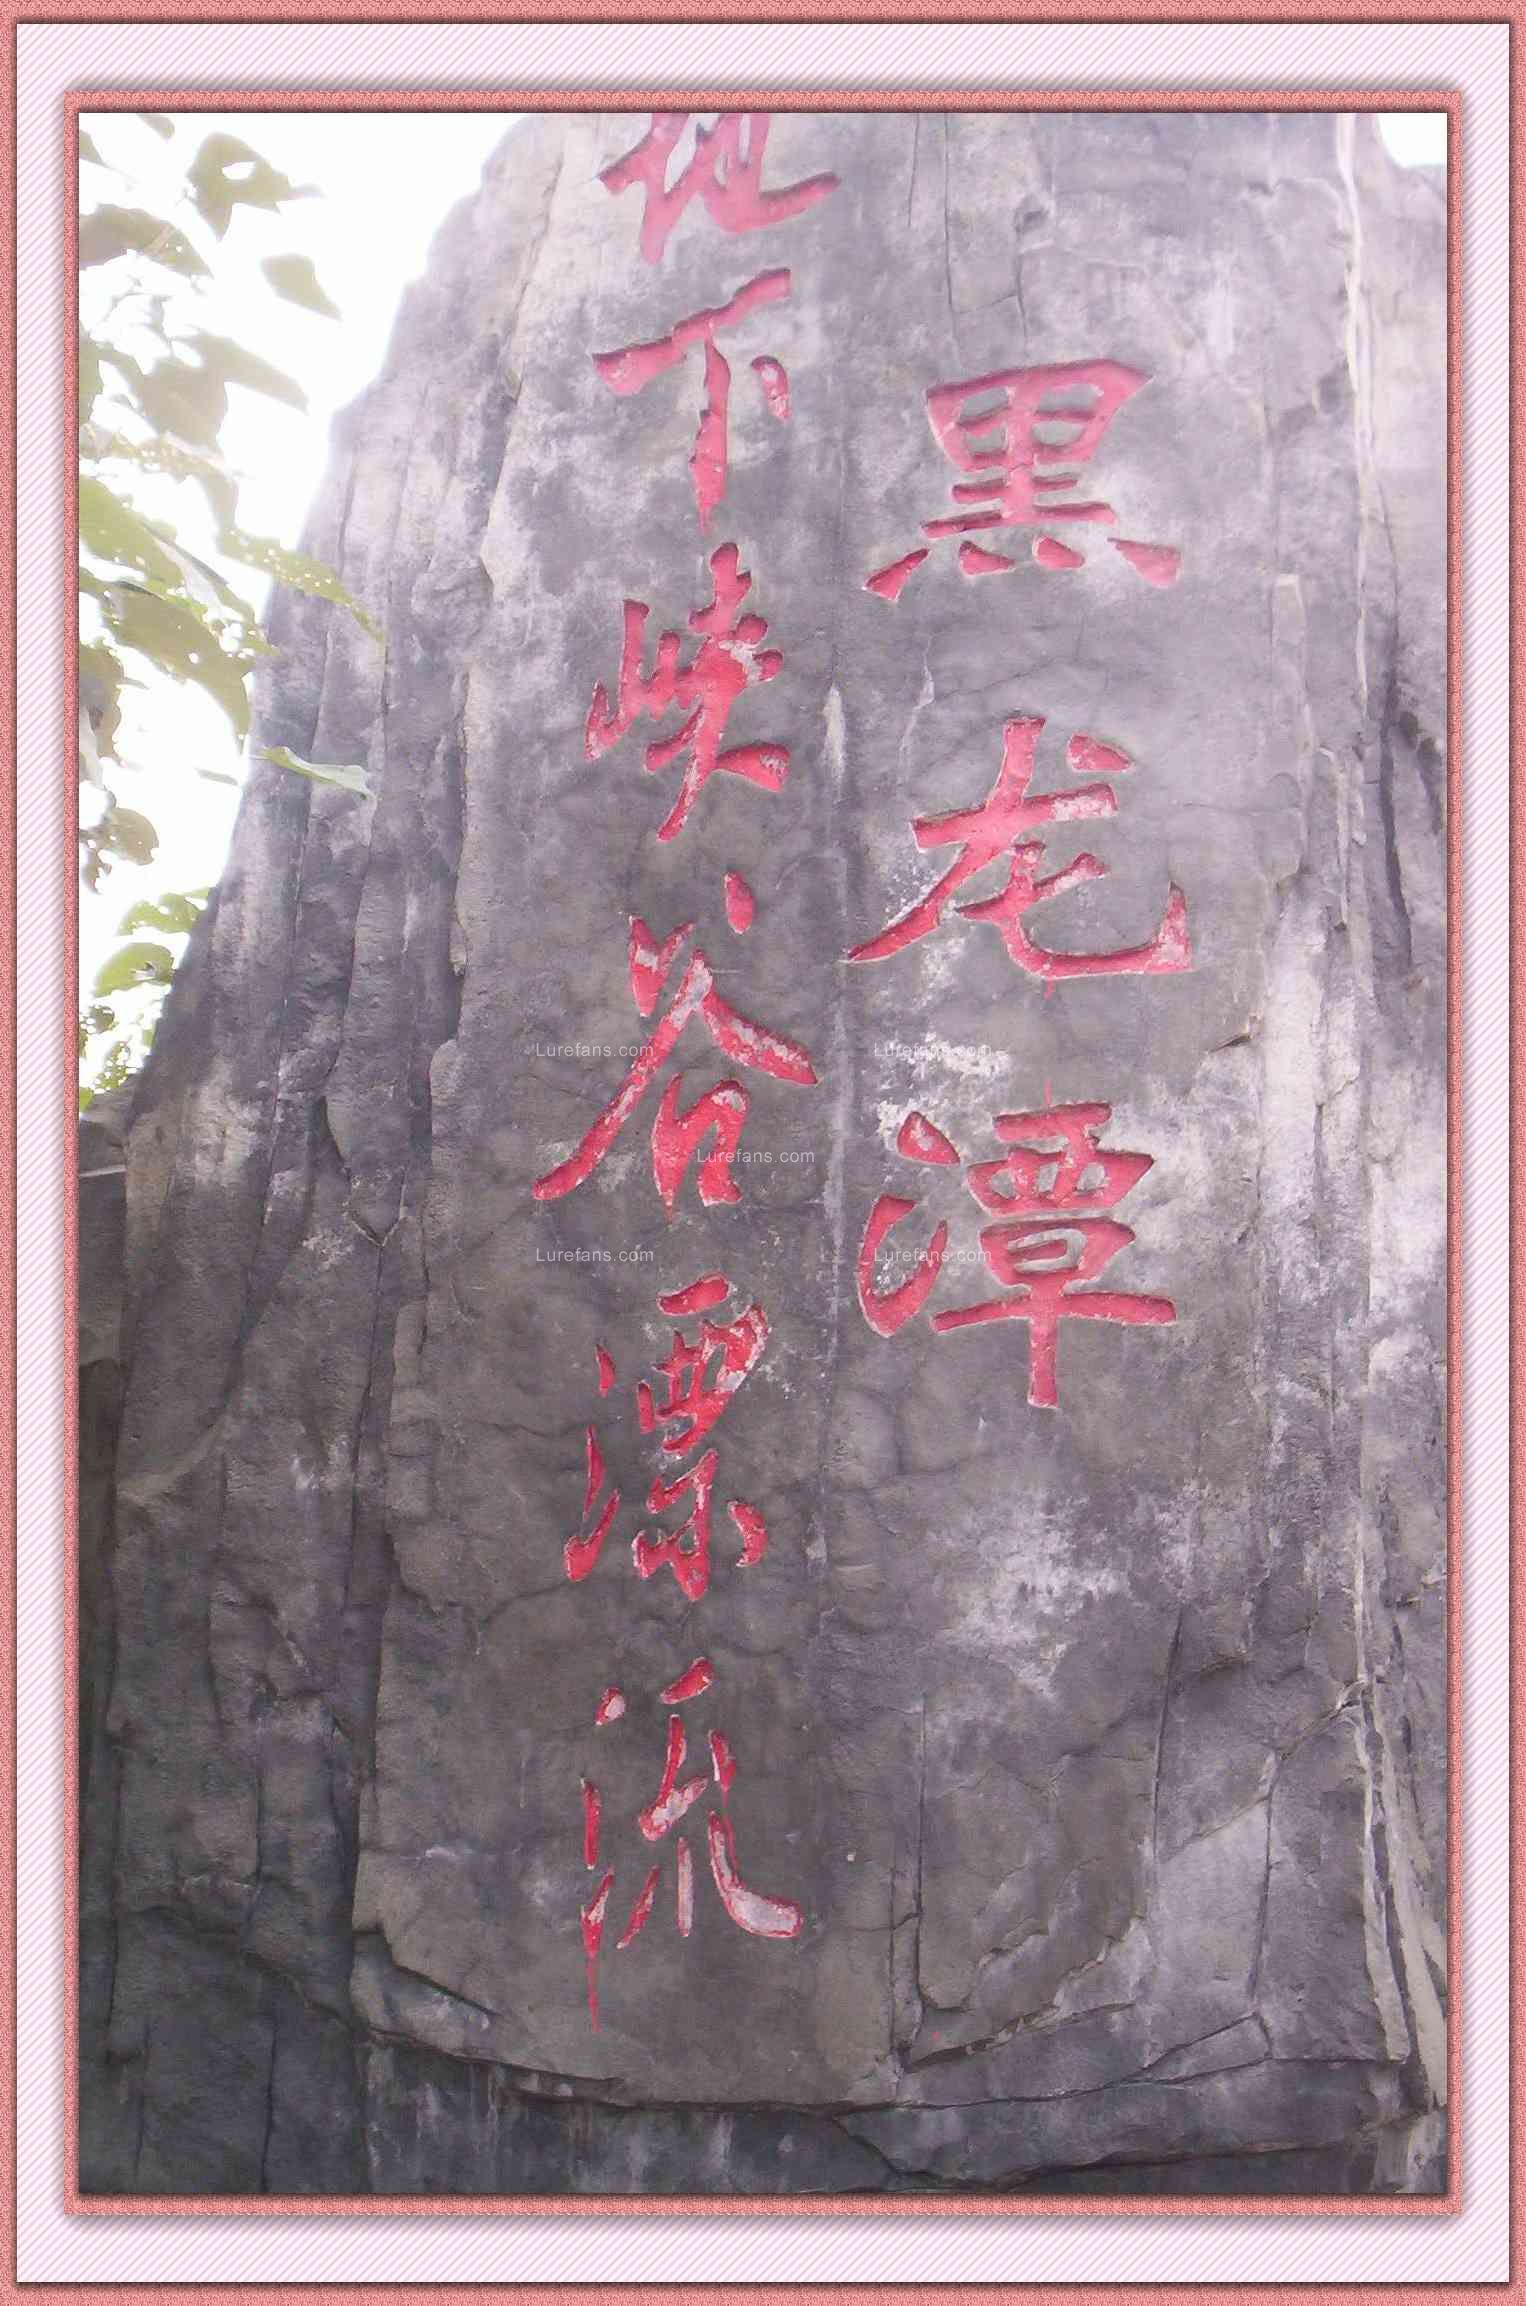 黑龙潭
地下峡谷漂流
Lurefans.com
Lurefans.com
Lurefans.com
Lurefans.com
Lurefans.com